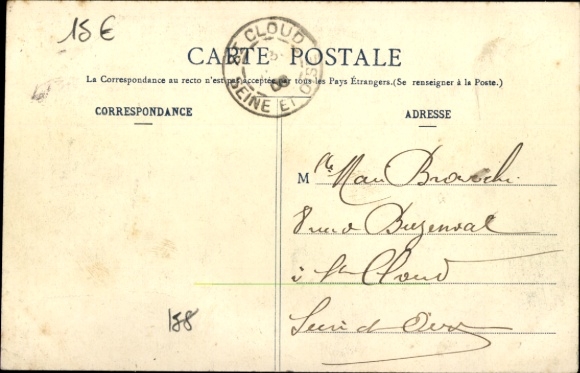 15 €
ST CLOUD
SEINE ET OISE
CARTE POSTALE
La Correspondance au recto n'est pas acceptée par tous les Pays Étrangers.(Se renseigner à la Poste.)
CORRESPONDANCE
ADRESSE
M
8 rue Buzenval
à St Cloud
Seine et Oise
188